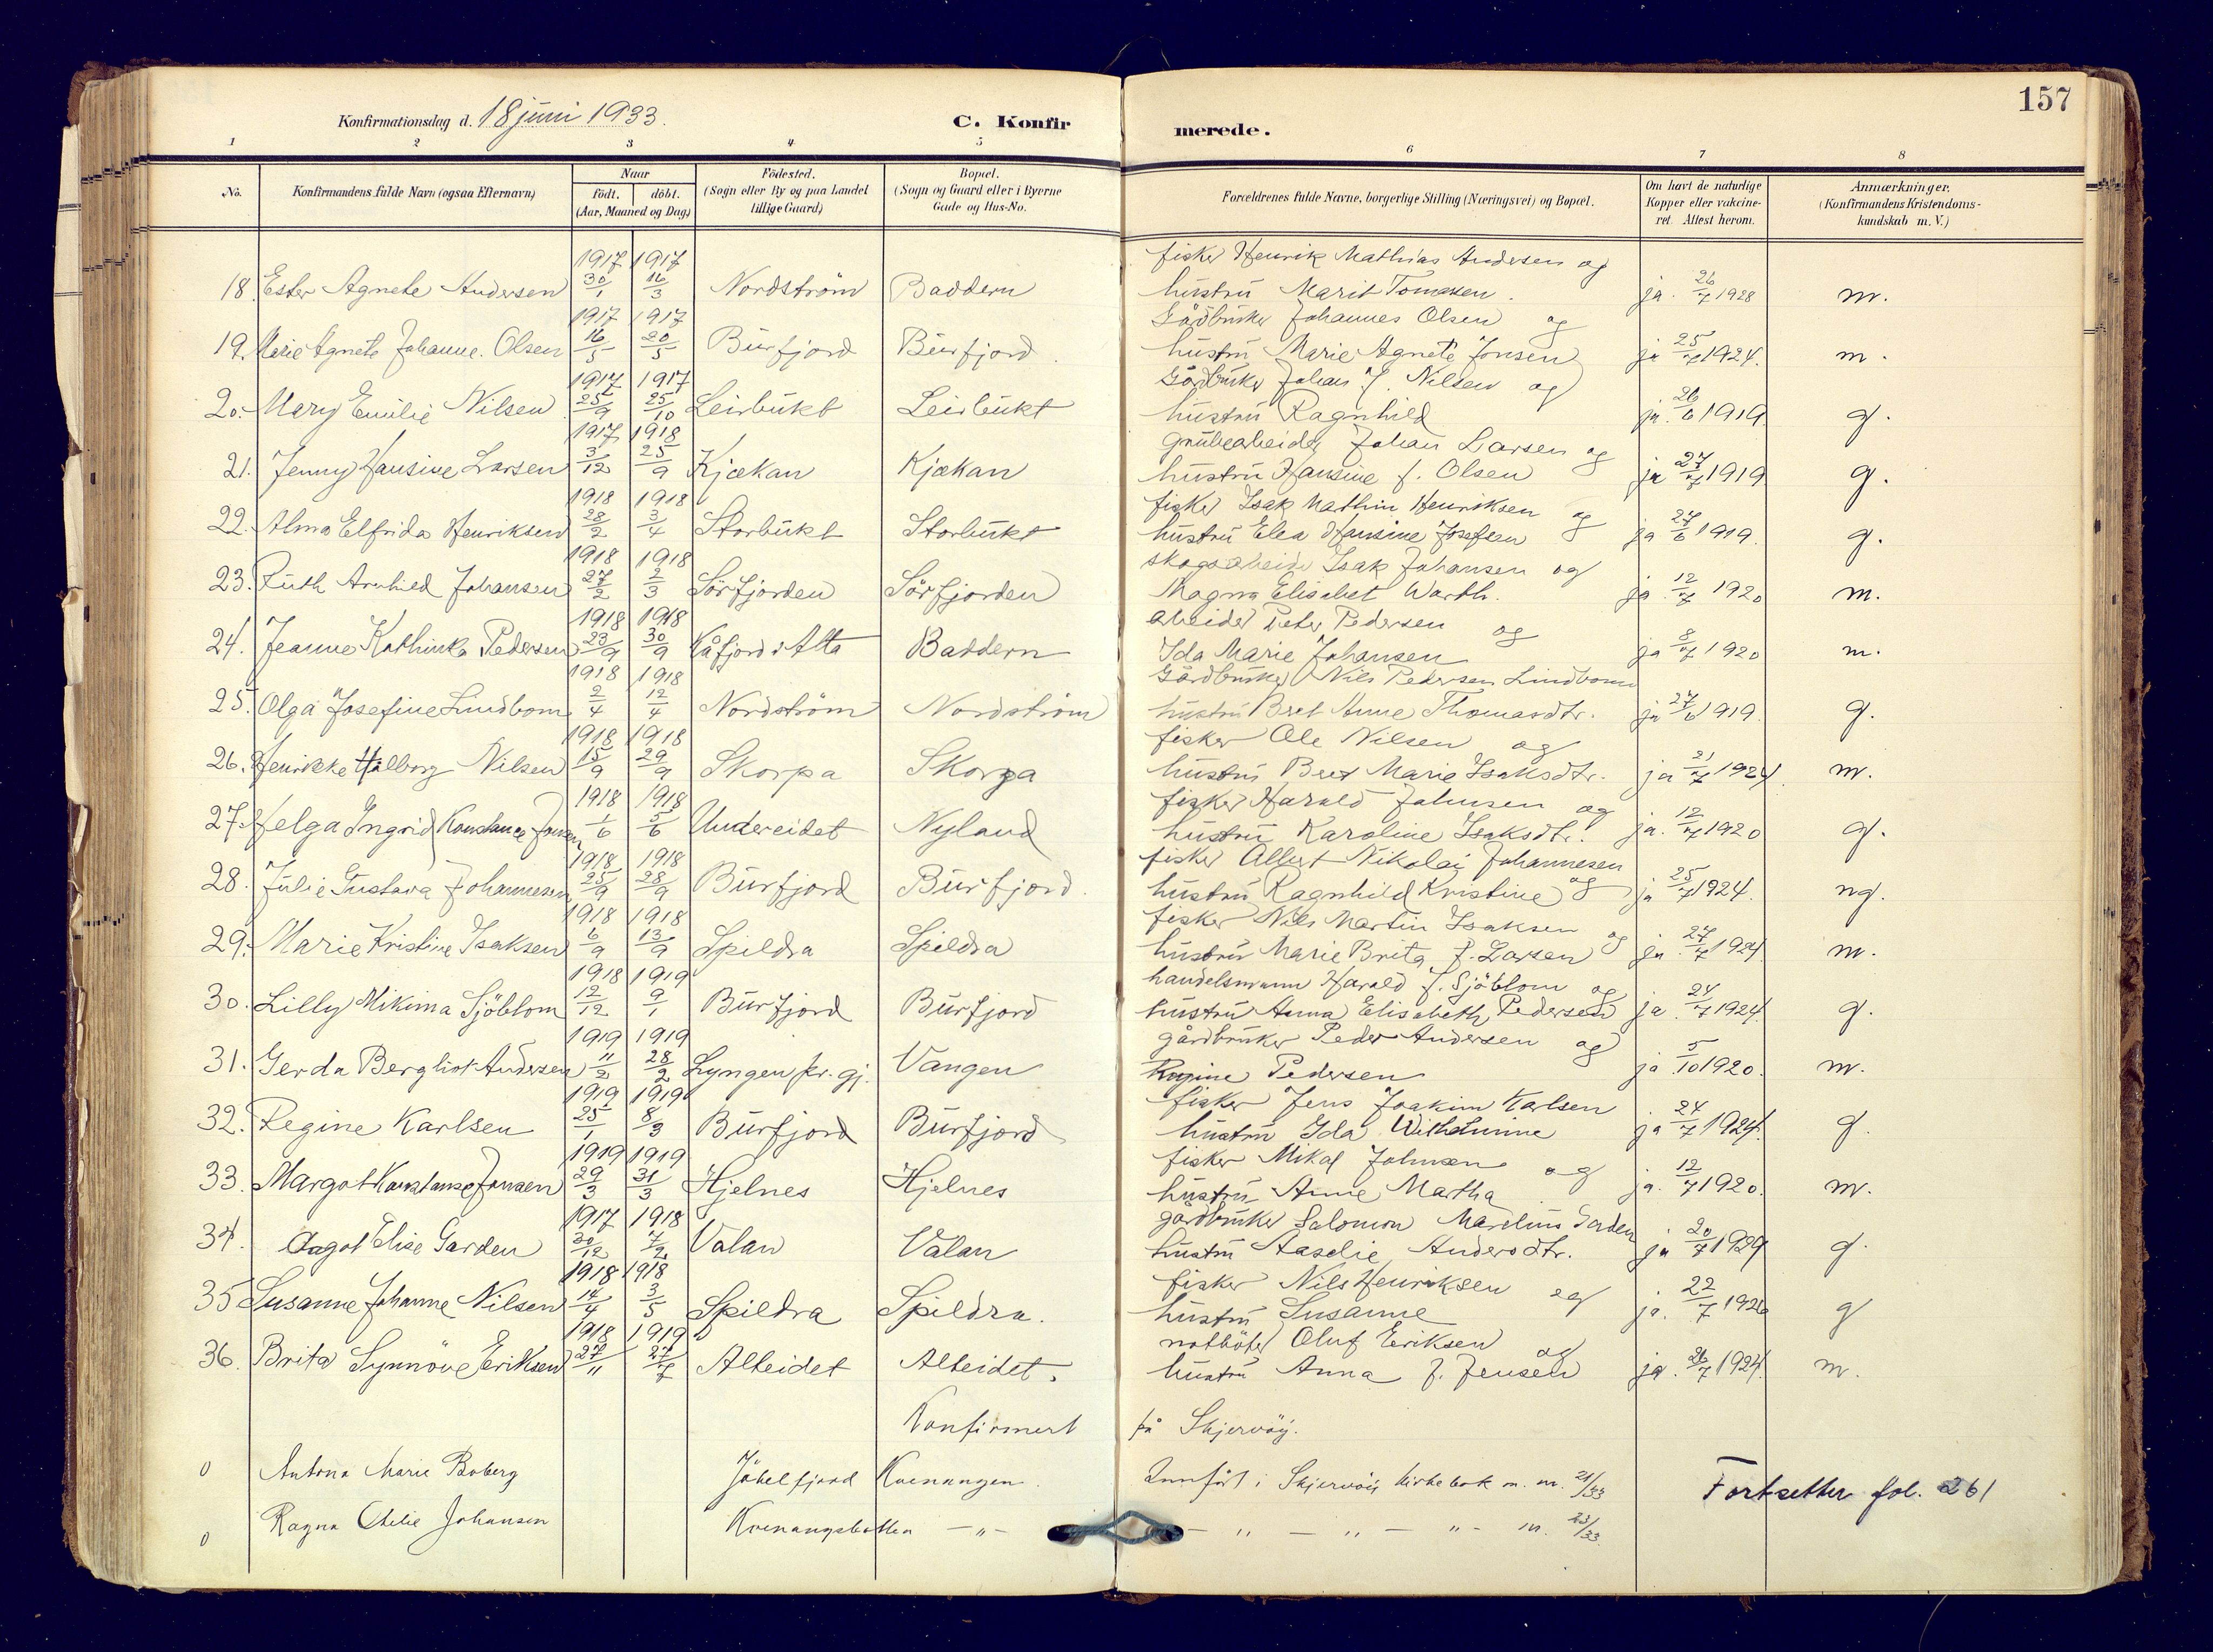 157
Konfirmationsdag d. 18 juni 1933.
C. Konfirmerede.
1 2 3 4 5 6 7 8
No.
Konfirmandens fulde Navn (ogsaa Efternavn)
Naar
födt. döbt.
(Aar, Maaned og Dag)
Födested.
(Sogn eller By og paa Landet
tillige Gaard)
Bopæl.
(Sogn og Gaard eller i Byerne
Gade og Hus-No.
Forældrenes fulde Navne, borgerlige Stilling (Næringsvei) og Bopæl.
Om havt de naturlige
Kopper eller vakcine-
ret. Attest herom.
Anmærkninger.
(Konfirmandens Kristendoms-
kundskab m. V.)
1917 1917 fisker Henrik Mathias Andersen og
18. Ester Agnete Andersen 30/1 16/3 Nordström Baddern hustru Marit Tomasen. ja. 26/7 1928 m.
1917 1917 Gårdbruker Johannes Olsen og
19. Marie Agnete Johanne. Olsen 16/5 20/5 Burfjord Burfjord. hustru Marie Agnete Jonsen ja 25/7 1924. m.
1917 1917 Gårdbruker Johan J. Nilsen og
20. Mary Emilie Nilsen 25/9 25/10 Leirbukt Leirbukt hustru Ragnhild ja. 26/6 1919 g.
1917 1918 grubearbeider Johan Larsen og
21. Jenny Hansine Larsen 3/12 25/9 Kjækan Kjækan hustru Hansine f. Olsen ja 27/7 1919 g.
1918 1918 fisker Isak Mathin Henriksen og
22. Alma Elfrida Henriksen 28/2 3/4 Storbukt Storbukt hustru Elea Hansine Josefsen ja 27/6 1919. g.
1918 1918 skogsarbeider Isak Johansen og
23. Ruth Arnhild Johansen 27/2 2/3 Sörfjorden Sörfjorden Magna Elisabet Warth. ja. 12/7 1920 m.
1918 1918 arbeider Peter Pedersen og
24. Jeanne Kathinka Pedersen 23/9 30/9 Kåfjord i Alta Baddern Ida Marie Johansen ja 8/7 1920 m.
1918 1918 Gårdbruker Nils Pedersen Lindbom
25. Olga Josefine Lindbom 2/4 12/4 Nordström Nordström hustru Bret Anne Thomasdtr. ja 27/6 1919. g.
1918 1918 fisker Ole Nilsen og
26. Henrikke Halborg Nilsen 15/9 29/9 Skorpa Skorpa hustru Bret Marie Isaksdtr. ja 21/7 1924. m.
1918 1918 fisker Harald Johnsen og
27. Helga Ingrid Konstance Jonsen 1/6 5/6 Undereidet Nyland hustru Karoline Isaksdtr. ja. 12/7 1920 g.
1918 1918 fisker Albert Nikolai Johannesen
28. Julie Gustava Johannesen 25/9 28/9 Burfjord Burfjord. hustru Ragnhild Kristine og ja 25/7 1924. ng.
1918 1918 fisker Nils Martin Isaksen og
29. Marie Kristine Isaksen 6/9 13/9 Spildra Spildra hustru Marie Brita f. Larsen ja. 27/7 1924. m.
1918 1919 handelsmann Harald f. Sjöblom og
30. Lilly Mikima Sjöblom 12/12 9/1 Burfjord Burfjord hustru Anna Elisabeth Pedersen ja. 24/7 1924. g.
1919 1919 gårdbruker Peder Andersen og
31. Gerda Bergliot Andersen 11/2 28/2 Lyngen pr. gj. Vangen Regine Pedersen ja 5/10 1920. m.
1919 1919 fisker Jens Joakim Karlsen
32. Regine Karlsen 25/1 8/3 Burfjord Burfjord hustru Ida Wilhelmine ja 24/7 1924. g.
1919 1919 fisker Mikal Johnsen og
33. Margot Konstanse Jonsen 29/3 31/3 Hjelnes Hjelnes hustru Anne Martha ja. 12/7 1920. m.
1917 1918 gårdbruker Salomon Marelius Garden
34. Dagot Elise Garden 30/12 7/2 Valan Valan hustru Aaselie Andersdtr. ja 20/7 1929 g.
1918 1918 fisker Nils Henriksen og
35 Susanne Johanne Nilsen 14/4 3/5 Spildra Spildra. hustru Susanne ja. 22/7 1926 g
1918 1919 notböter Oluf Eriksen og
36. Brita Synnöve Eriksen 27/11 27/7 Alteidet Alteidet. hustru Anna f. Jensen ja. 26/7 1924. m.
Konfirmert på Skjervöy.
0 Antona Marie Boberg Jökelfjord Kvenangen. Innfört i Skjervöy kirkebok m. nr. 21/33
Fortsetter fol. 261
0 Ragna Othelie Johansen Kvenangsbotten — " — — " — " — " — nr. 23/33